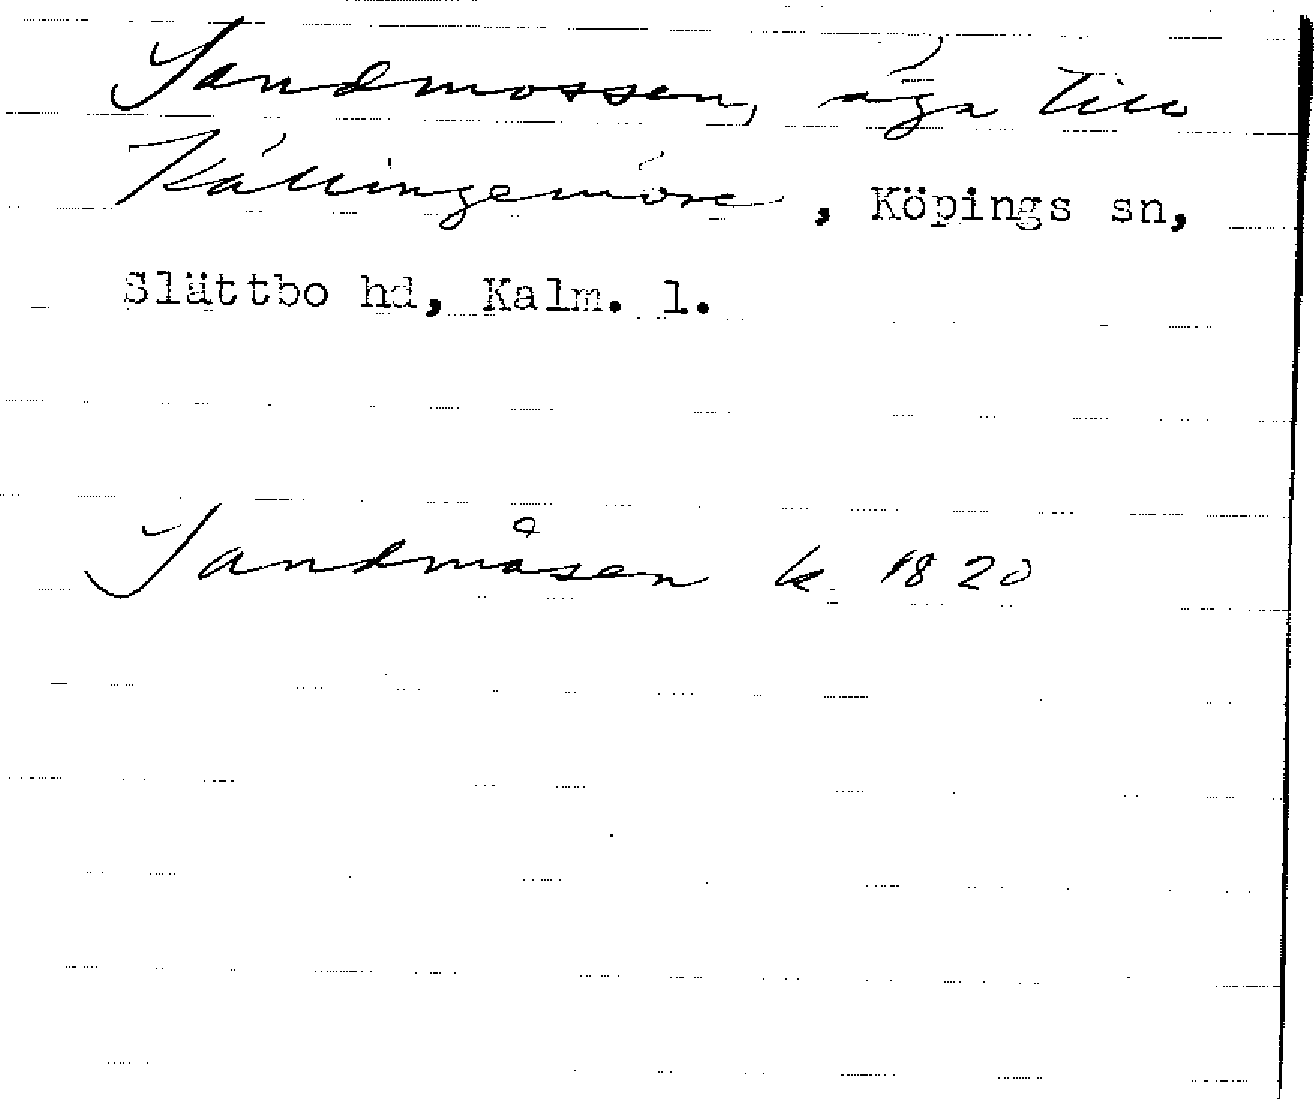 Sandmossen, äga till
Källingemöre, Köpings sn,
Slättbo hd, Kalm. l.
Sandmåsen k 1820